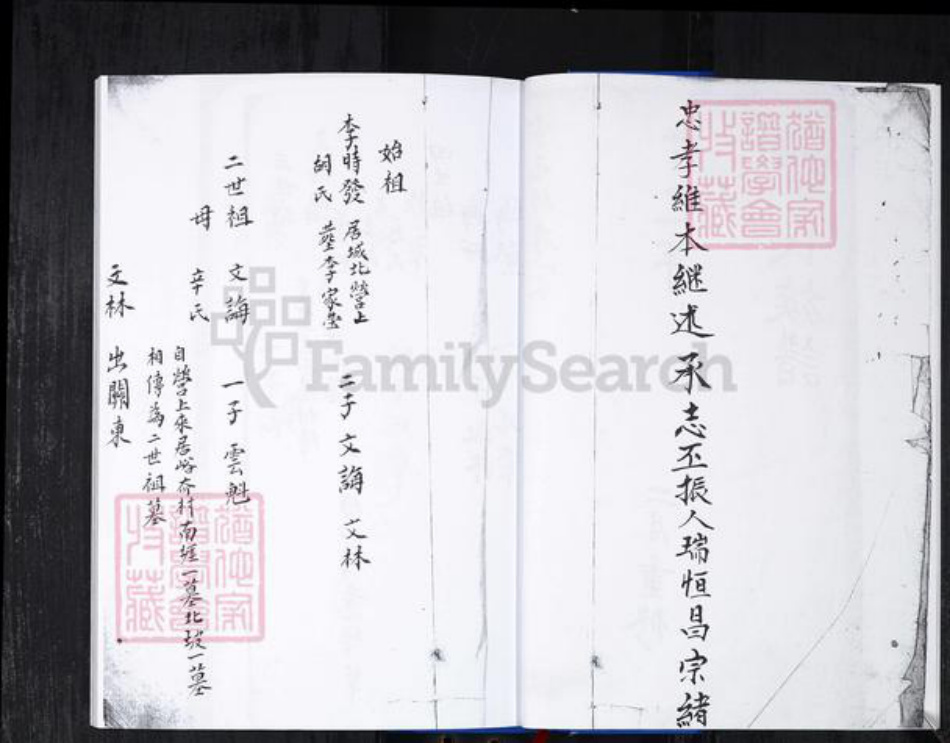 忠孝維本繼述承志丕振人瑞恒昌宗緒
始祖
李時發 居城北營上 二子文誨 文林
胡氏 塋李家塋
二世祖 文誨 一子雲魁
母 辛氏
自營上來居峪夼村南㙻一墓北坡一墓
相傳為二世祖墓
文林 出關東
猶他家譜學會收藏
猶他家譜學會收藏
FamilySearch